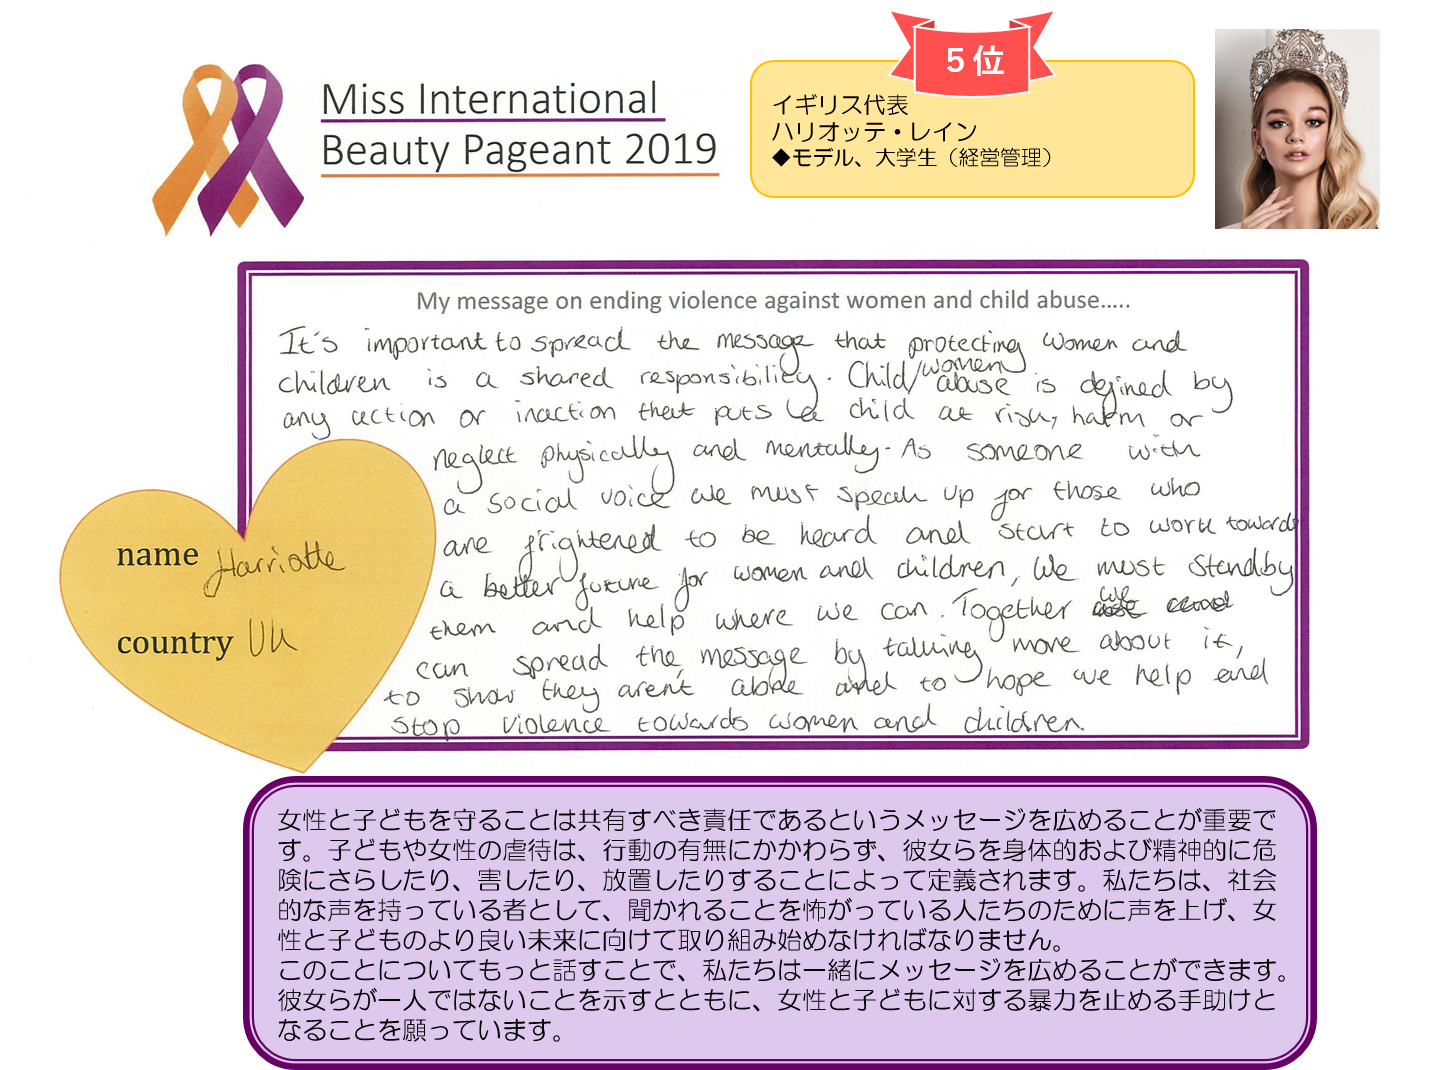 Miss International
Beauty Pageant 2019
5位
イギリス代表
ハリオッテ・レイン
◆モデル、大学生（経営管理）
My message on ending violence against women and child abuse.....
It's important to spread the message that protecting women and
children is a shared responsibility. Child/women abuse is defined by
any action or inaction that puts a child at risk, harm or
neglect physically and mentally. As someone with
a social voice we must speak up for those who
are frightened to be heard and start to work towards
a better future for women and children, We must standby
them and help where we can. Together we
can spread the message by talking more about it,
to show they aren't alone and to hope we help end
stop violence towards women and children.
name Harriotte
country Uk
女性と子どもを守ることは共有すべき責任であるというメッセージを広めることが重要で
す。子どもや女性の虐待は、行動の有無にかかわらず、彼女らを身体的および精神的に危
険にさらしたり、害したり、放置したりすることによって定義されます。私たちは、社会
的な声を持っている者として、聞かれることを怖がっている人たちのために声を上げ、女
性と子どものより良い未来に向けて取り組み始めなければなりません。
このことについてもっと話すことで、私たちは一緒にメッセージを広めることができます。
彼女らが一人ではないことを示すとともに、女性と子どもに対する暴力を止める手助けと
なることを願っています。